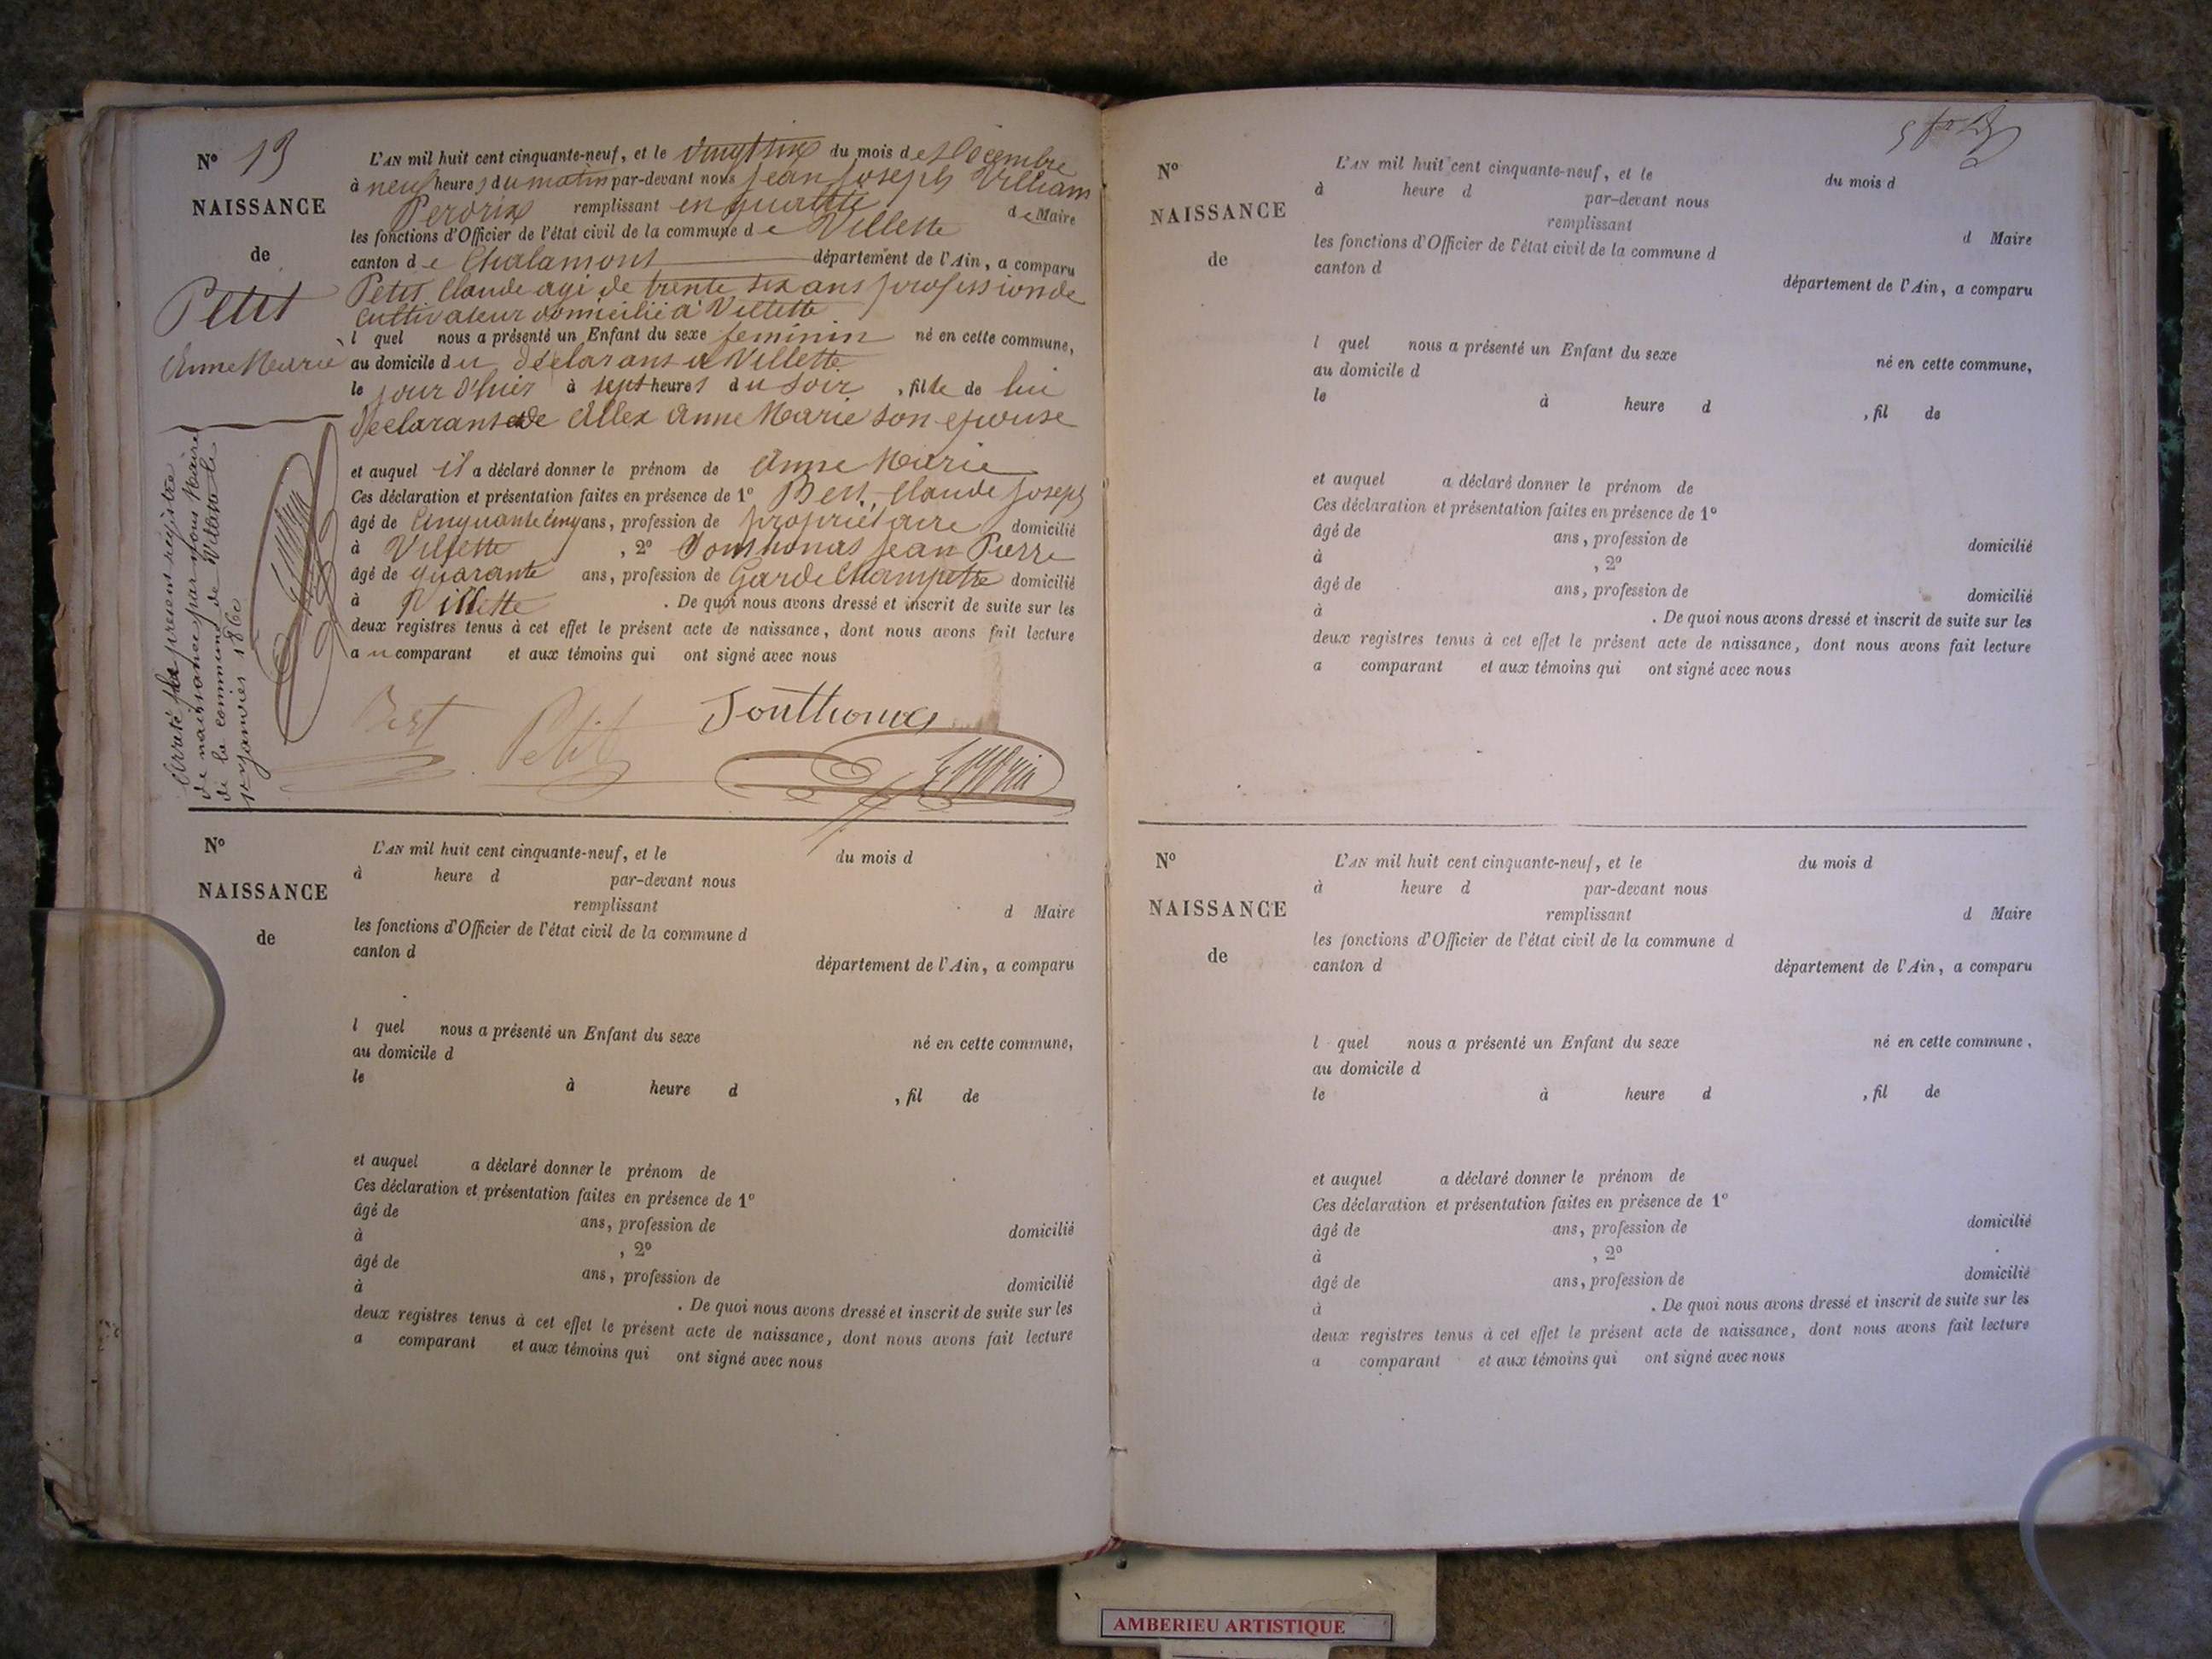 N° 19
NAISSANCE
de
Petit
Anne Marie
L'AN mil huit cent cinquante-neuf, et le vingt six du mois de Décembre
à neuf heures du matin par-devant nous Jean Joseph William
Perdrix remplissant en qualité de Maire
les fonctions d'Officier de l'état civil de la commune de Villette
canton de Chalamont département de l'Ain, a comparu
Petit Claude agé de trente six ans profession de
cultivateur domicilié à Villette
l quel nous a présenté un Enfant du sexe feminin né en cette commune,
au domicile du déclarant à Villette
le jour d'hier à sept heures du soir, fille de lui
declarant et de Allex Anne Marie son epouse
et auquel il a déclaré donner le prénom de Anne Marie
Ces déclaration et présentation faites en présence de 1° Best Claude Joseph
âgé de Cinquante cinq ans, profession de propriétaire domicilié
à Villette, 2° Jean Pierre
âgé de quarante ans, profession de Garde Champetre domicilié
à Villette. De quoi nous avons dressé et inscrit de suite sur les
deux registres tenus à cet effet le présent acte de naissance, dont nous avons fait lecture
au comparant et aux témoins qui ont signé avec nous
Best Petit
Arreté le present registre
de naissance par nous Maire
de la commune de Villette le
1er janvier 1860
N°
NAISSANCE
de
L'AN mil huit cent cinquante-neuf, et le du mois d
à heure d par-devant nous
remplissant d Maire
les fonctions d'Officier de l'état civil de la commune d
canton d département de l'Ain, a comparu
l quel nous a présenté un Enfant du sexe né en cette commune,
au domicile d
le à heure d , fil de
et auquel a déclaré donner le prénom de
Ces déclaration et présentation faites en présence de 1°
âgé de ans, profession de domicilié
à , 2°
âgé de ans, profession de domicilié
à . De quoi nous avons dressé et inscrit de suite sur les
deux registres tenus à cet effet le présent acte de naissance, dont nous avons fait lecture
a comparant et aux témoins qui ont signé avec nous
N°
NAISSANCE
de
L'AN mil huit cent cinquante-neuf, et le du mois d
à heure d par-devant nous
remplissant d Maire
les fonctions d'Officier de l'état civil de la commune d
canton d département de l'Ain, a comparu
l quel nous a présenté un Enfant du sexe né en cette commune,
au domicile d
le à heure d , fil de
et auquel a déclaré donner le prénom de
Ces déclaration et présentation faites en présence de 1°
âgé de ans, profession de domicilié
à , 2°
âgé de ans, profession de domicilié
à . De quoi nous avons dressé et inscrit de suite sur les
deux registres tenus à cet effet le présent acte de naissance, dont nous avons fait lecture
a comparant et aux témoins qui ont signé avec nous
N°
NAISSANCE
de
L'AN mil huit cent cinquante-neuf, et le du mois d
à heure d par-devant nous
remplissant d Maire
les fonctions d'Officier de l'état civil de la commune d
canton d département de l'Ain, a comparu
l quel nous a présenté un Enfant du sexe né en cette commune,
au domicile d
le à heure d , fil de
et auquel a déclaré donner le prénom de
Ces déclaration et présentation faites en présence de 1°
âgé de ans, profession de domicilié
à , 2°
âgé de ans, profession de domicilié
à . De quoi nous avons dressé et inscrit de suite sur les
deux registres tenus à cet effet le présent acte de naissance, dont nous avons fait lecture
a comparant et aux témoins qui ont signé avec nous
AMBERIEU ARTISTIQUE